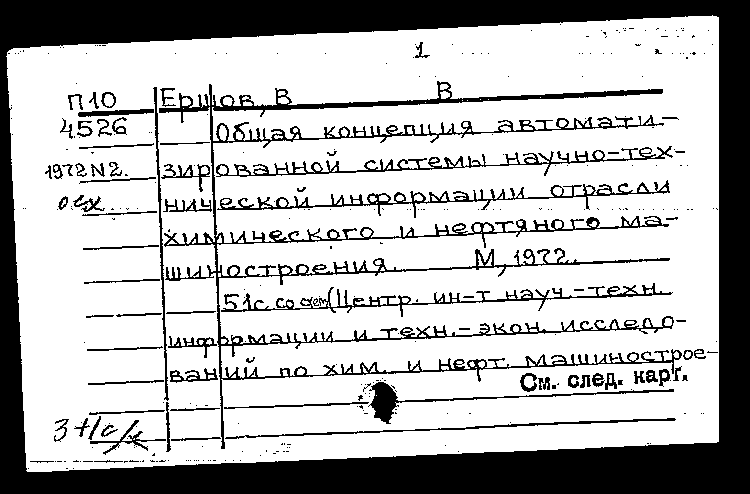 1
П10 Ершов, В В
4526 Общая концепция автомати-
1972 N2. зированной системы научно-тех-
нической информации отрасли
химического и нефтяного ма-
шиностроения. М, 1972.
51с. со схем (Центр. ин-т науч.-техн.
информации и техн.-экон. исследо-
ваний по хим. и нефт. машинострое-
См. след. карт.